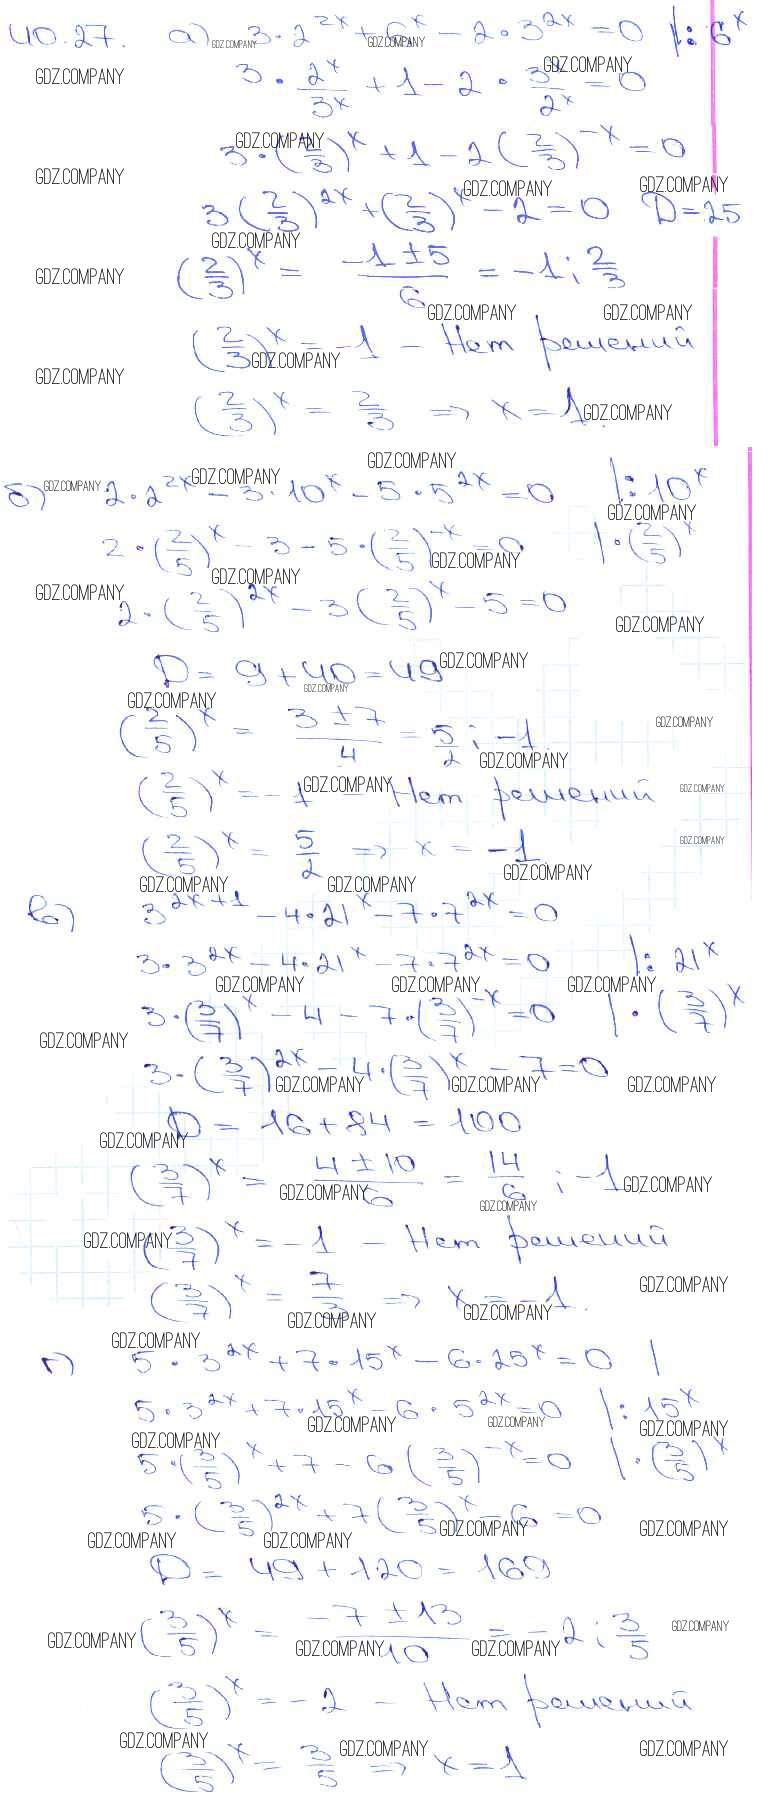 40.27. а) 3·2^{2x} + 6^x − 2·3^{2x} = 0 |: 6^x
3 · 2^x/3^x + 1 − 2 · 3^x/2^x = 0
3·(2/3)^x + 1 − 2(2/3)^{−x} = 0
3(2/3)^{2x} + (2/3)^x − 2 = 0 D = 25
(2/3)^x = (−1 ± 5)/6 = −1; 2/3
(2/3)^x = −1 – Нет решений
(2/3)^x = 2/3 ⇒ x = 1.
б) 2·2^{2x} − 3·10^x − 5·5^{2x} = 0 |: 10^x
2·(2/5)^x − 3 − 5·(2/5)^{−x} = 0 |·(2/5)^x
2·(2/5)^{2x} − 3(2/5)^x − 5 = 0
D = 9 + 40 = 49
(2/5)^x = (3 ± 7)/4 = 5/2; −1
(2/5)^x = −1 – Нет решений
(2/5)^x = 5/2 ⇒ x = −1
в) 3^{2x+1} − 4·21^x − 7·7^{2x} = 0
3·3^{2x} − 4·21^x − 7·7^{2x} = 0 |: 21^x
3·(3/7)^x − 4 − 7·(3/7)^{−x} = 0 |·(3/7)^x
3·(3/7)^{2x} − 4·(3/7)^x − 7 = 0
D = 16 + 84 = 100
(3/7)^x = (4 ± 10)/6 = 14/6; −1
(3/7)^x = −1 – Нет решений
(3/7)^x = 7/3 ⇒ x = −1.
г) 5·3^{2x} + 7·15^x − 6·25^x = 0 |
5·3^{2x} + 7·15^x − 6·5^{2x} = 0 |: 15^x
5·(3/5)^x + 7 − 6(3/5)^{−x} = 0 |·(3/5)^x
5·(3/5)^{2x} + 7(3/5)^x − 6 = 0
D = 49 + 120 = 169
(3/5)^x = (−7 ± 13)/10 = −2; 3/5
(3/5)^x = −2 – Нет решений
(3/5)^x = 3/5 ⇒ x = 1
GDZ.COMPANY